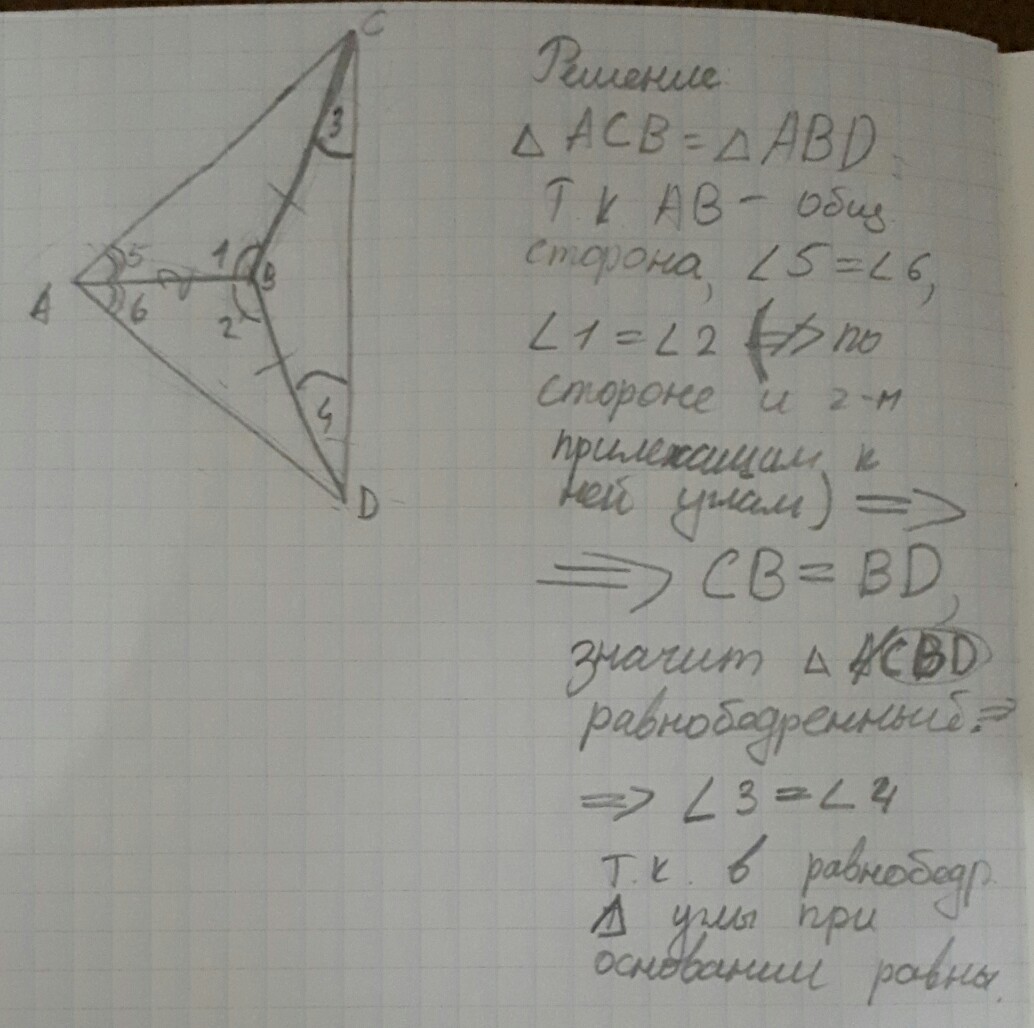 C
3
5
1
B
A
6
2
4
D
Решение
△ ACB = △ ABD,
Т.к AB - общ.
сторона, ∠5 = ∠6,
∠1 = ∠2 (=> по
стороне и 2-м
прилежащим к
ней углам) =>
=> CB = BD,
значит △ CBD
равнобедренный. =>
=> ∠3 = ∠4
т.к. в равнобедр.
△ углы при
основании равны.